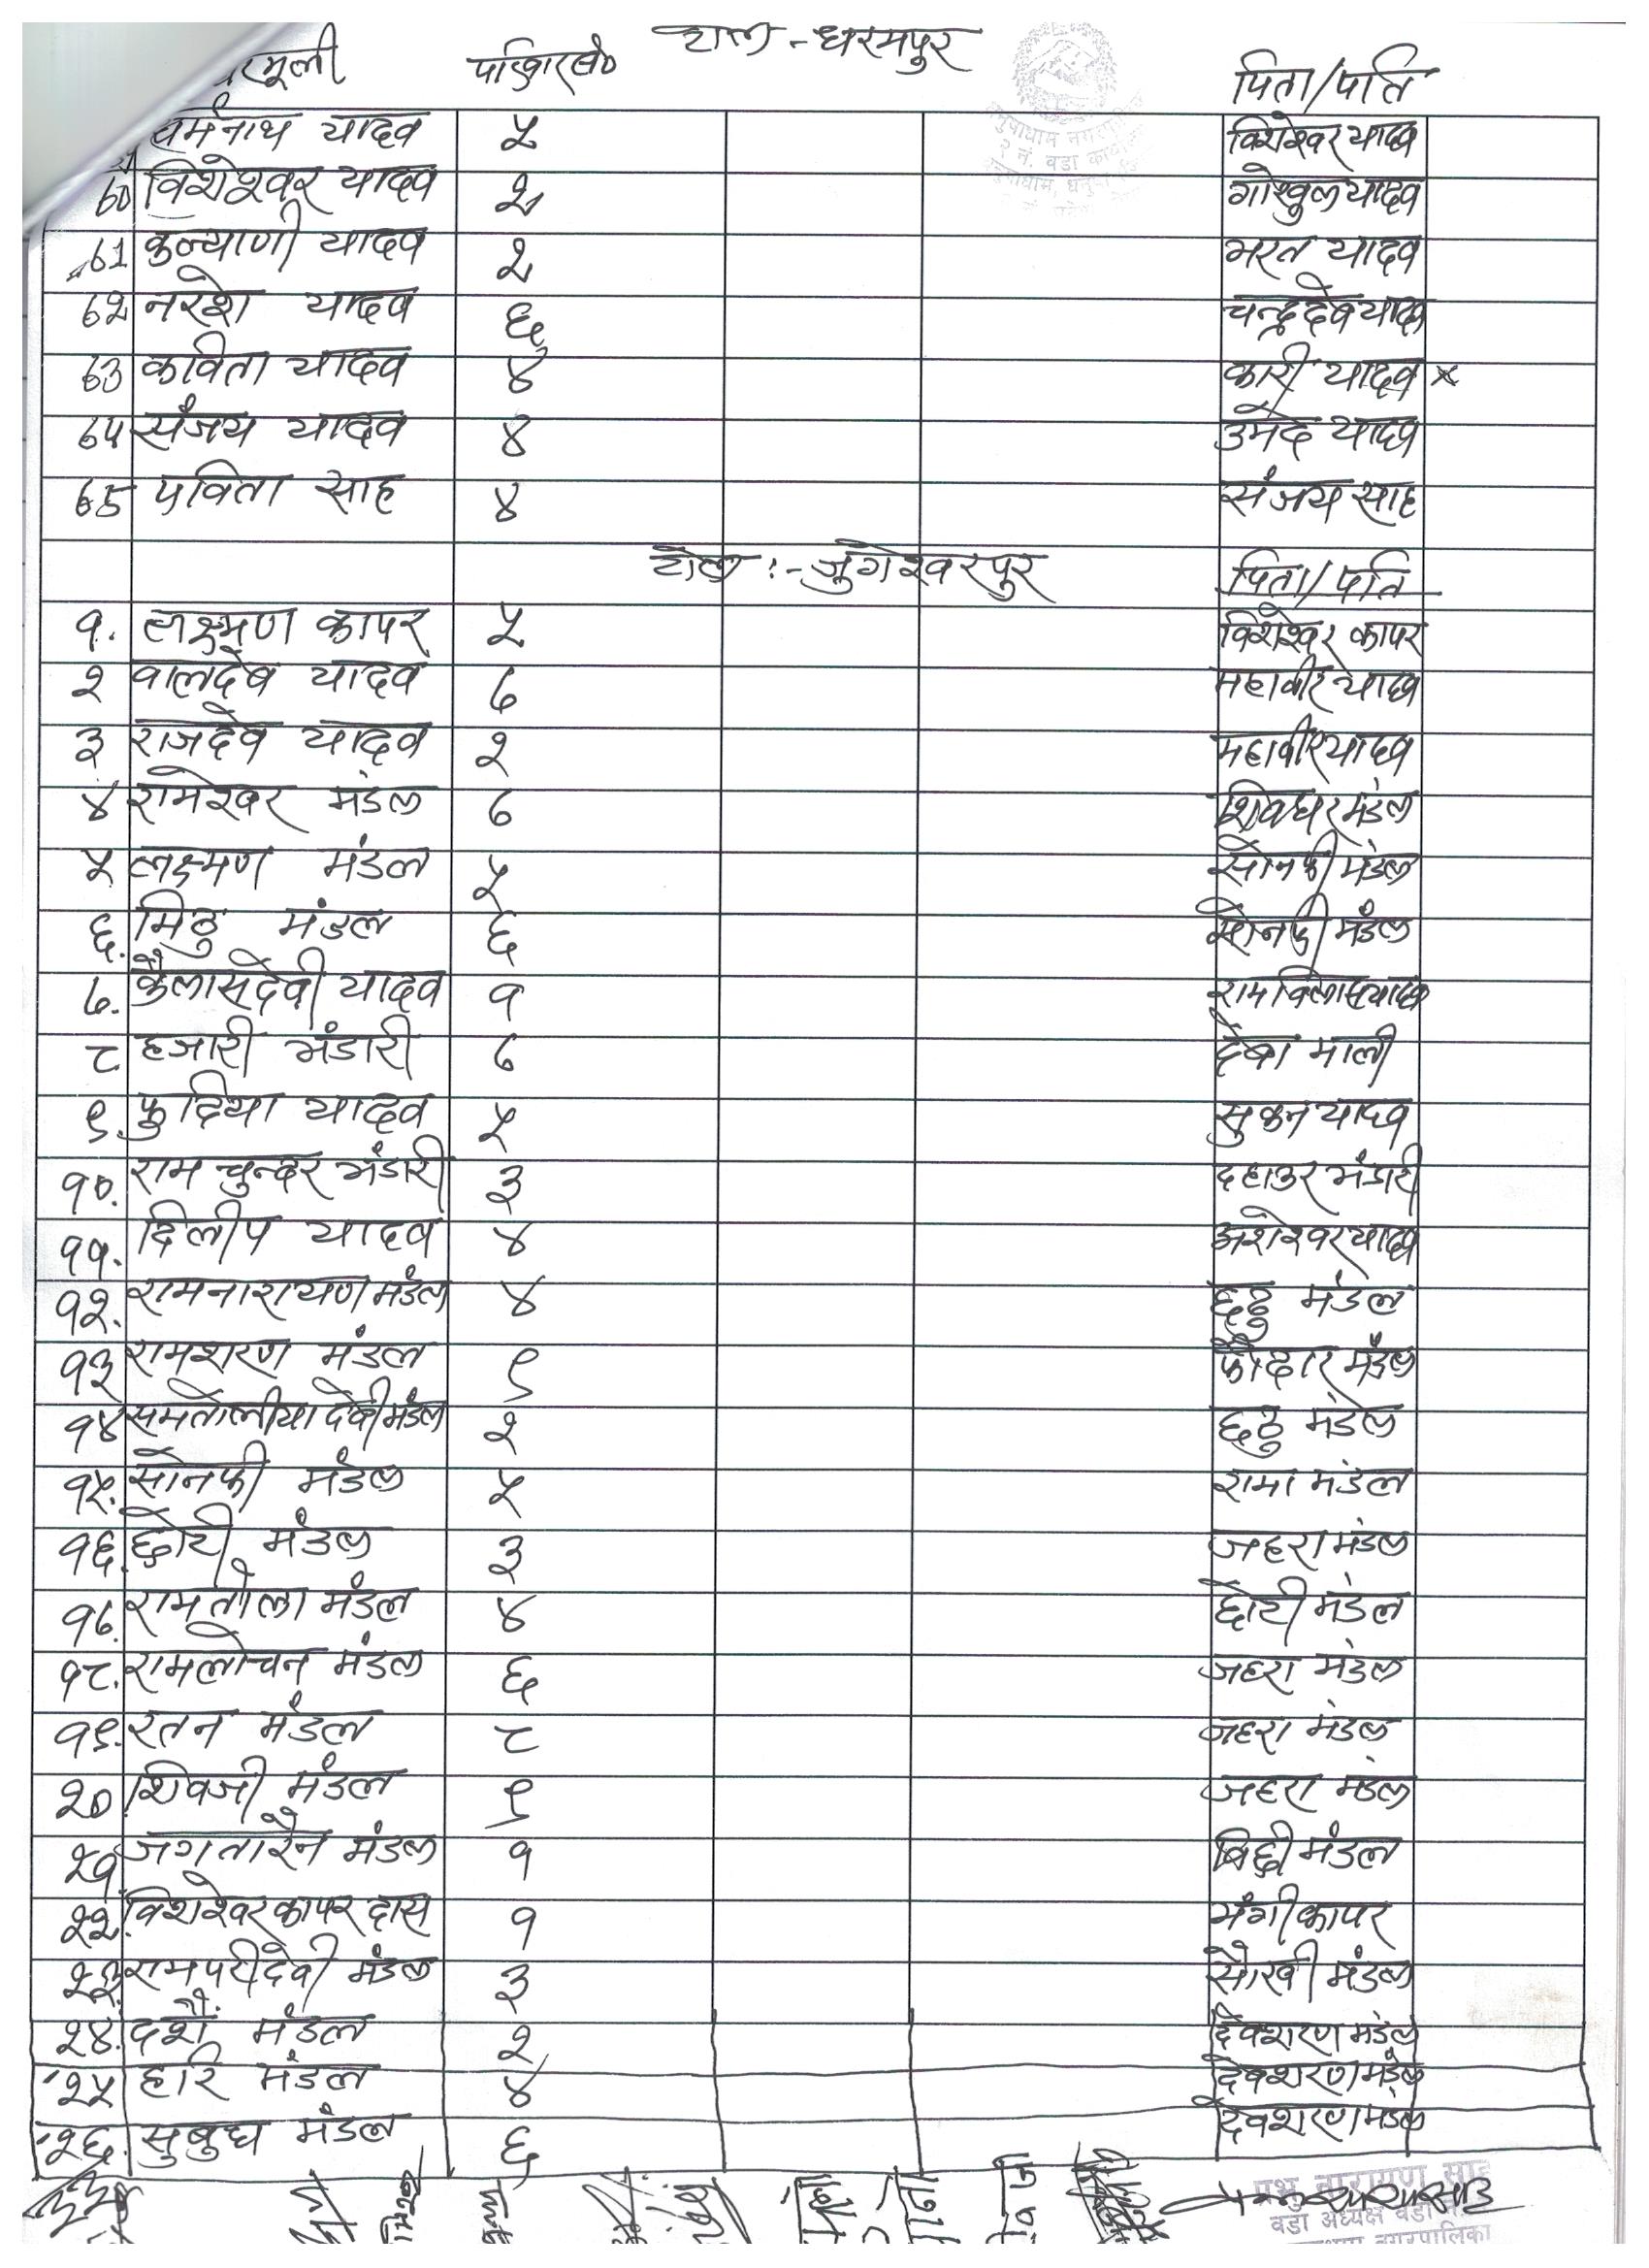 टोल - धरमपुर
घरमूली पारिवार सं० पिता/पति
धर्मनाथ यादव ५ विशेश्वर यादव
६० विशेश्वर यादव २ गोखुल यादव
६१ कल्याणी यादव २ भरत यादव
६२ नरेश यादव ६ चन्द्रदेव यादव
६३ कविता यादव ४ कारी यादव x
६४ संजय यादव ४ उमेद यादव
६५ पविता साह ४ संजय साह
टोल :- जुगेश्वरपुर पिता/पति
१. लक्ष्मण कापर ५ विशेश्वर कापर
२ वालदेव यादव ७ महावीर यादव
३ राजदेव यादव २ महावीर यादव
४ रामेश्वर मंडल ७ शिवधर मंडल
५ लक्ष्मण मंडल ५ सोनफी मंडल
६. मिठु मंडल ६ सोनफी मंडल
७. कैलासदेवी यादव १ राम विलास यादव
८ हजारी भंडारी ७ देबा माली
९. फुदिया यादव ५ सुकन यादव
१०. राम चुन्दर भंडारी ३ दहाउर भंडारी
११. दिलीप यादव ४ अशेश्वर यादव
१२. रामनारायण मंडल ४ छठु मंडल
१३ रामशरण मंडल ९ फौदार मंडल
१४ समतोलीया देवी मंडल २ छठु मंडल
१५. सोनफी मंडल ५ रामा मंडल
१६. छोटी मंडल ३ जहरा मंडल
१७. रामतोला मंडल ४ छोटी मंडल
१८. रामलोचन मंडल ६ जहरा मंडल
१९. रतन मंडल ८ जहरा मंडल
२० शिवजी मंडल ९ जहरा मंडल
२१ जगतारैन मंडल १ बिद्दी मंडल
२२. विशेश्वर कापर दास १ मंगी कापर
२३. रामपरी देवी मंडल ३ सौखी मंडल
२४. दशैं मंडल २ देवशरण मंडल
२५ हरि मंडल ४ देवशरण मंडल
२६. सुबुध मंडल ६ देवशरण मंडल
प्रभु नारायण साह
वडा अध्यक्ष वडा नं.
नगरपालिका